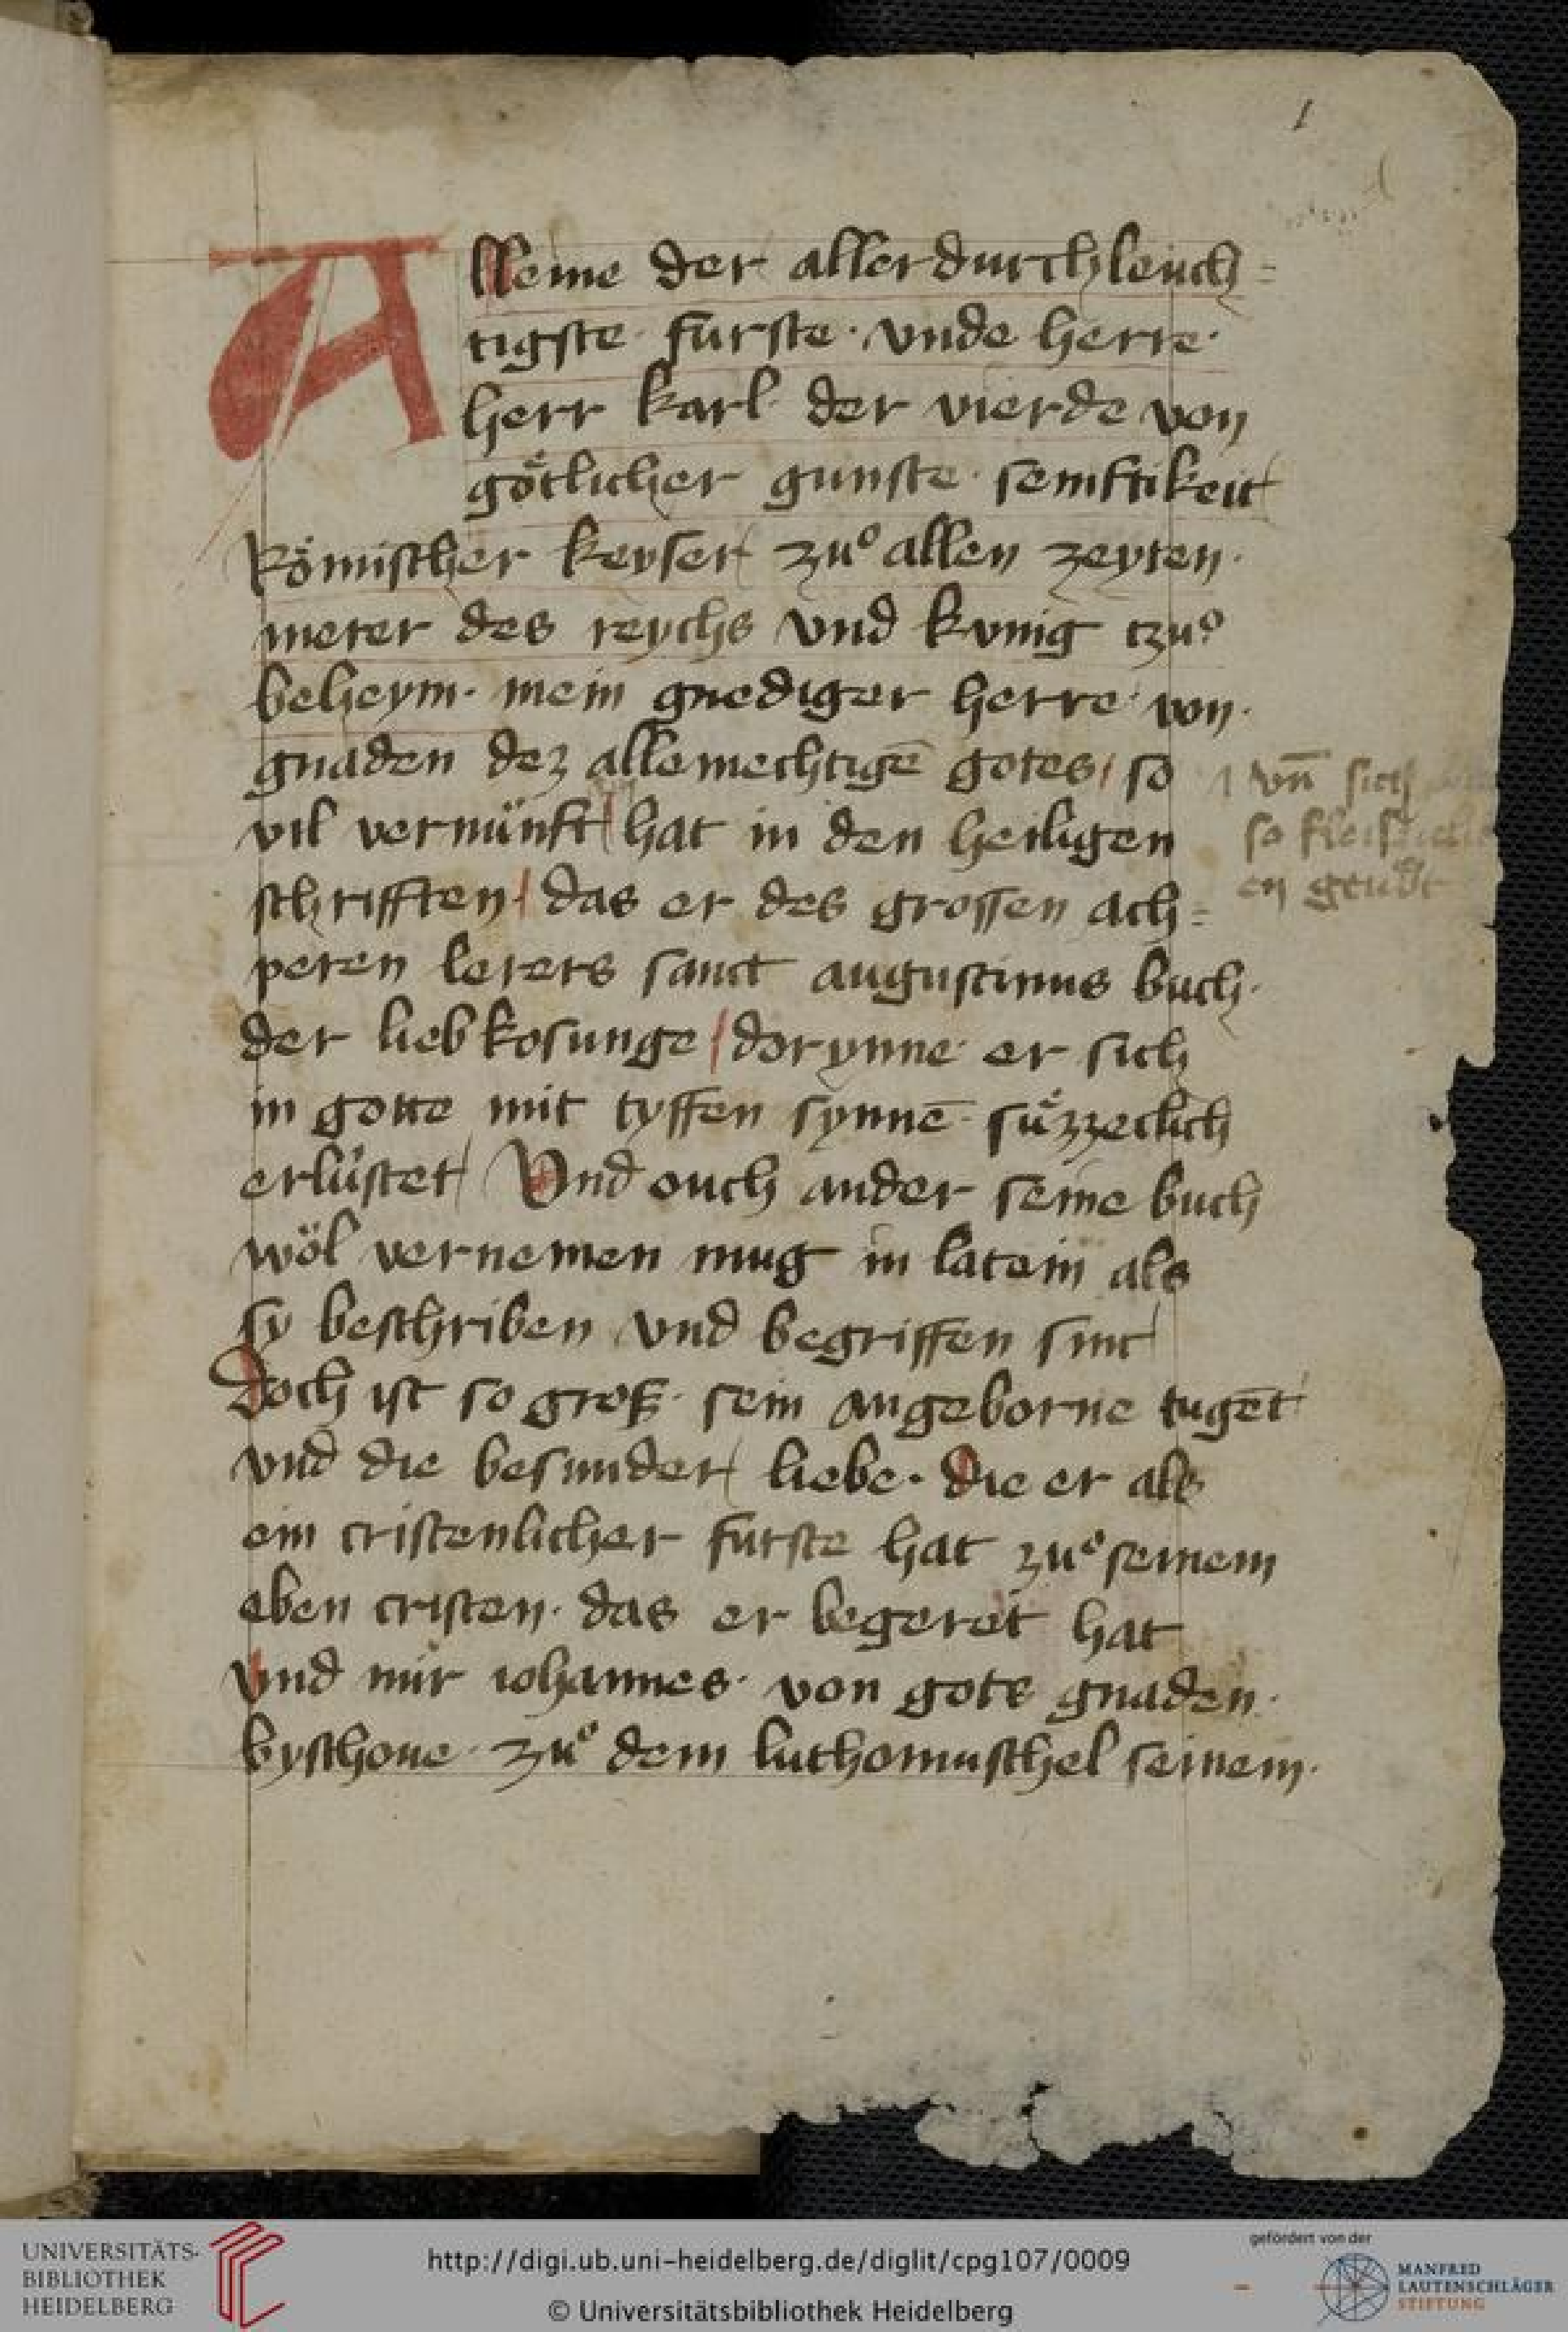 1
Alleine der allerdurchleuch=
tigste · furste · vnde herre ·
herr karl · der vierde von
götlicher gunste · semftikeit
Römischer keyser zuͦ allen zeyten ·
merer des reychs vnd kvnig tzuͦ
beheym · mein gnediger herre · von ·
gnaden dez allemechtigē gotes / so
vil vernünft / hat in den heiligen
schrifften / das er des grossen ach=
peren lerers sanct augustinus buch ·
der liebkosunge / dorynne er sich
in gotte mit tyffen synnē · suͤzzeclich
erlüstet Vnd ouch ander seine buch
wöl vernemen mug in latein als
sy beschriben vnd begriffen sint
Doch ist so groß · sein angeborne tugēt
vnd die besunder liebe · die er als
ein cristenlicher furste hat zuͦ seinem
eben cristen · das er begeret hat
vnd mir iohannes · von gots gnaden ·
byschoue · zuͦ dem luthomuschel seinem ·
vn̄ sich
so
en
UNIVERSITÄTS-
BIBLIOTHEK
HEIDELBERG
http://digi.ub.uni-heidelberg.de/diglit/cpg107/0009
© Universitätsbibliothek Heidelberg
gefördert von der
MANFRED
LAUTENSCHLÄGER
STIFTUNG